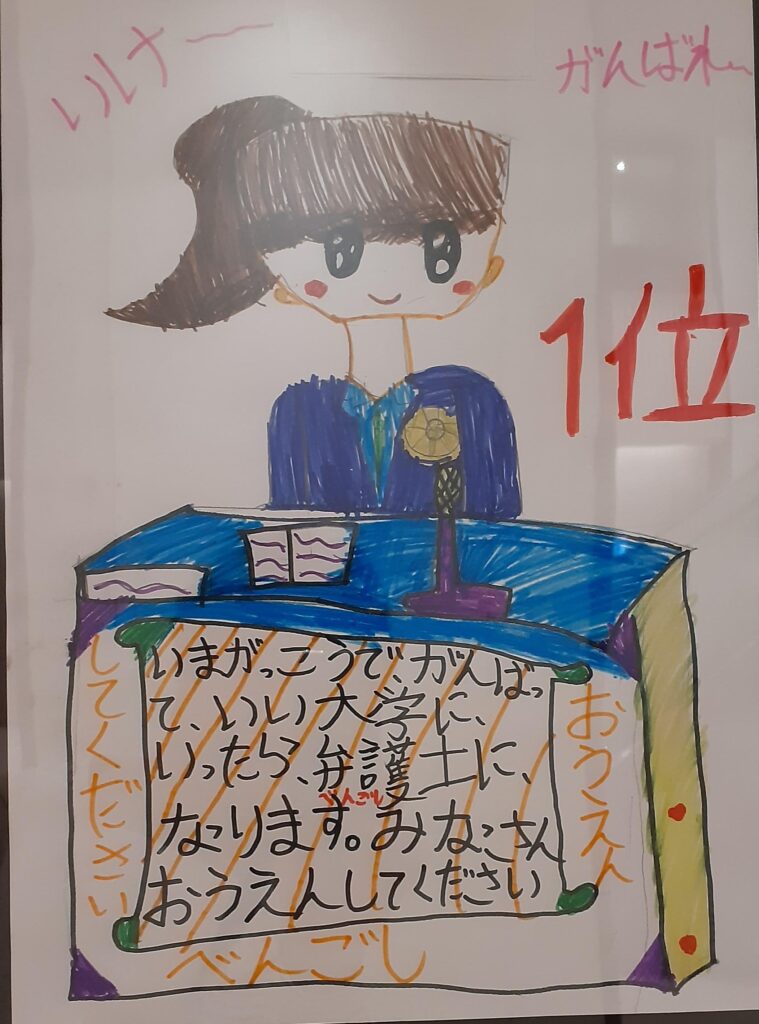 いけー
がんばれー
1位
いまがっこうで、がんばっ
て、いい大学に、
いったら、弁護士に、
べんごし
なります。みなさん
おうえんしてください
おうえん
してください
べんごし